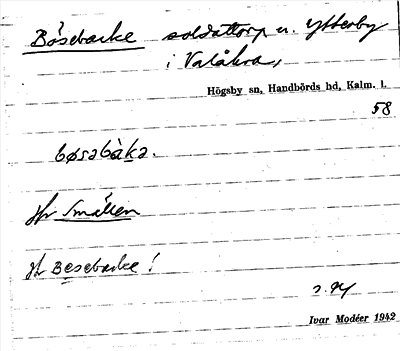 Bösebacke soldattorp u. Ytterby
i Valåkra,
Högsby sn, Handbörds hd, Kalm. l.
58
bøsabàka.
Jfr Smällen
Jfr Besebacke!
s. 94
Ivar Modéer 1942